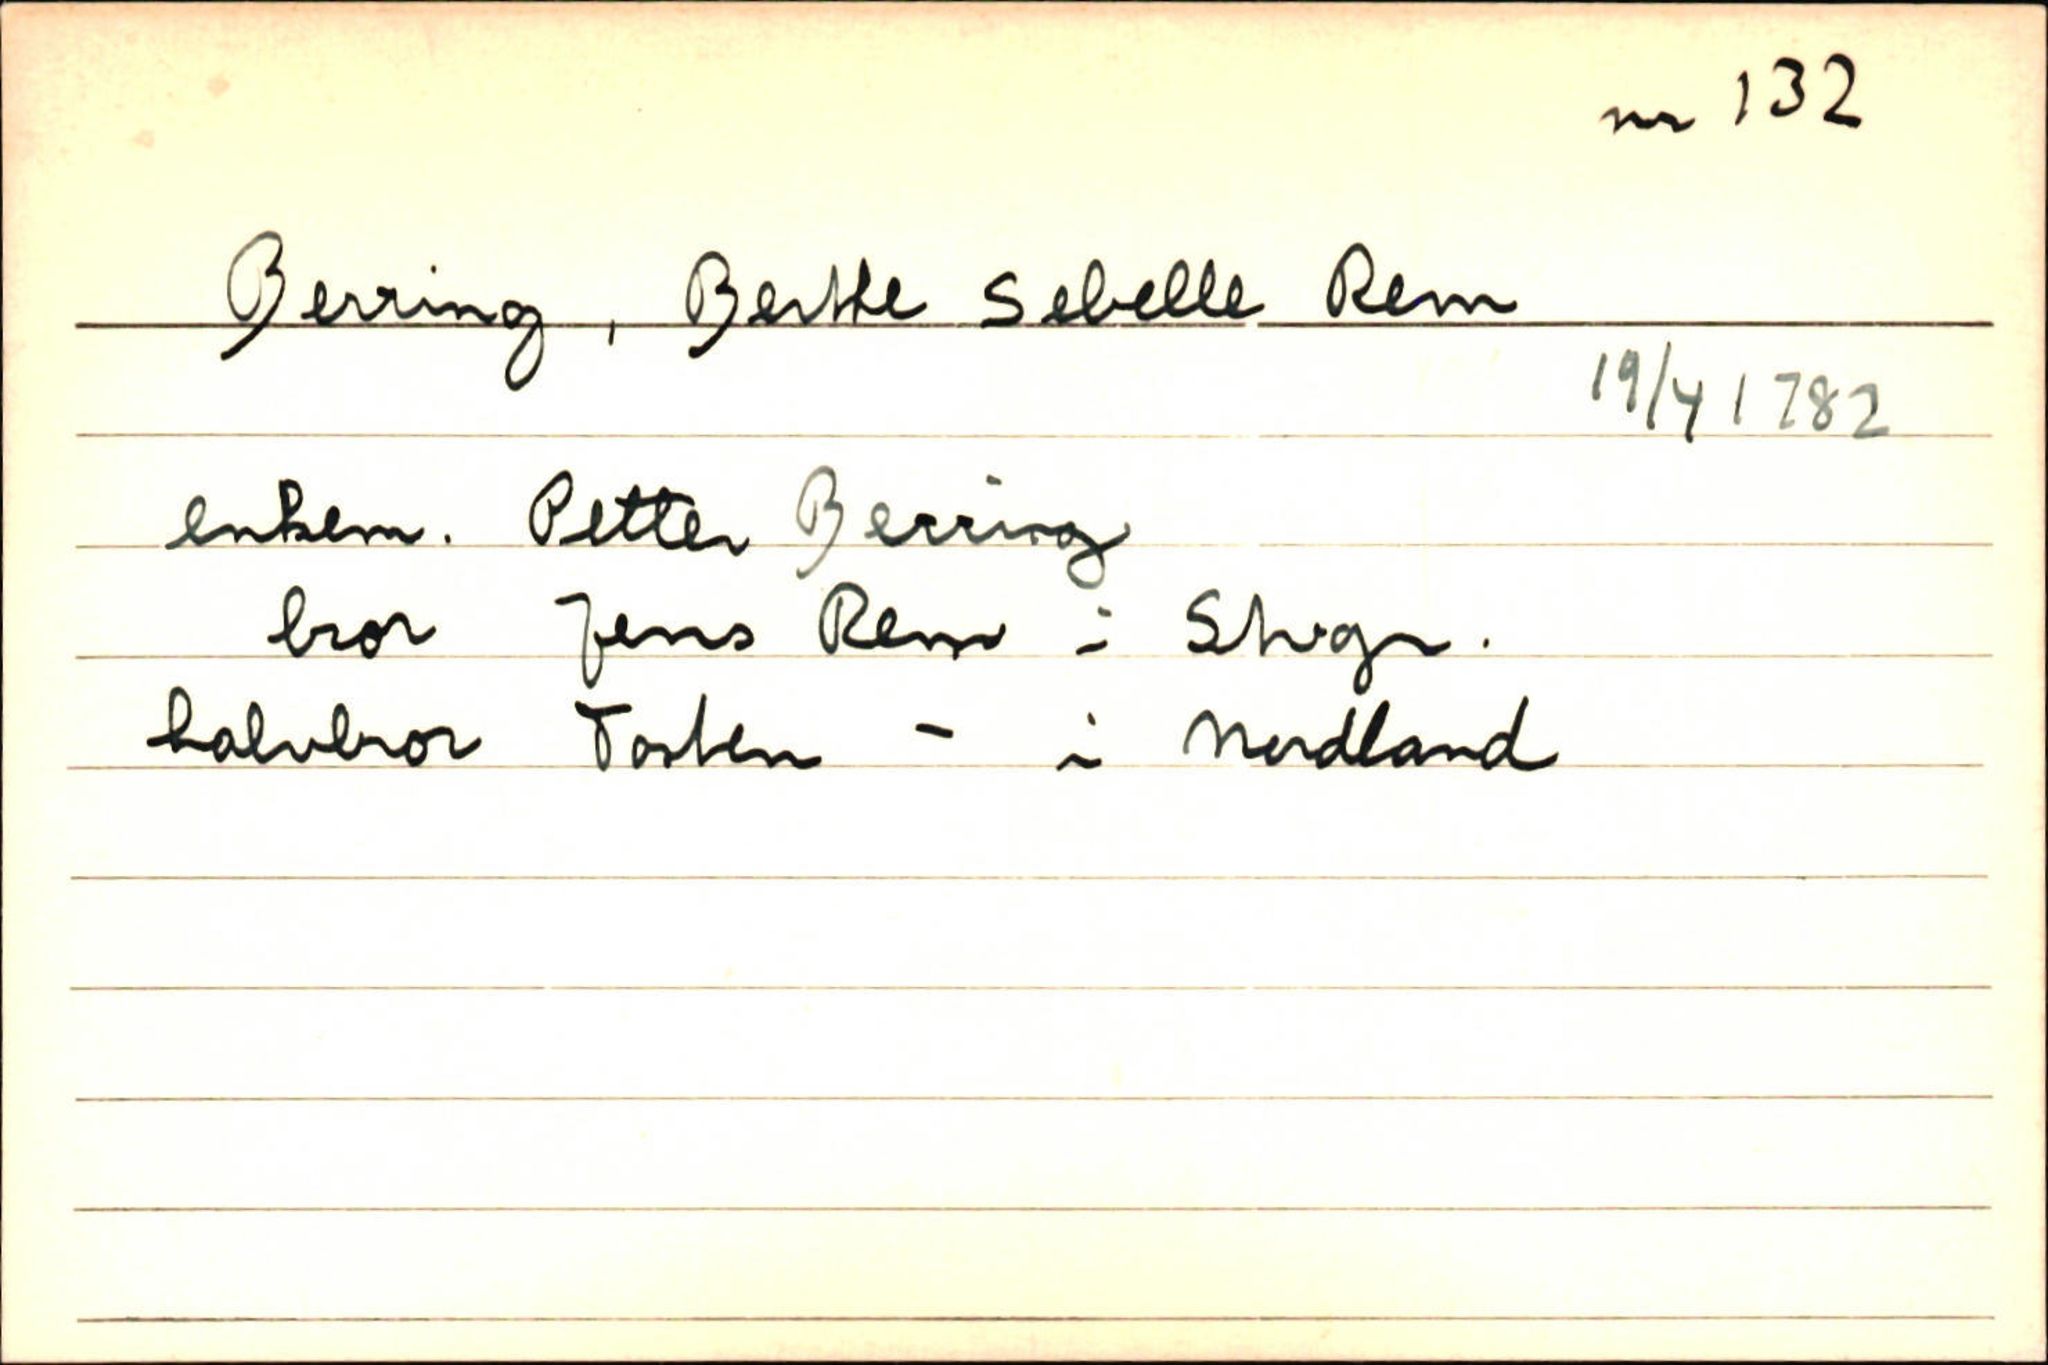 nr 132
Berring, Berthe Sebelle Rem
19/4 1782
enkem. Petter Berring
bror Jens Rem i
halvbror Tosten - i Nordland